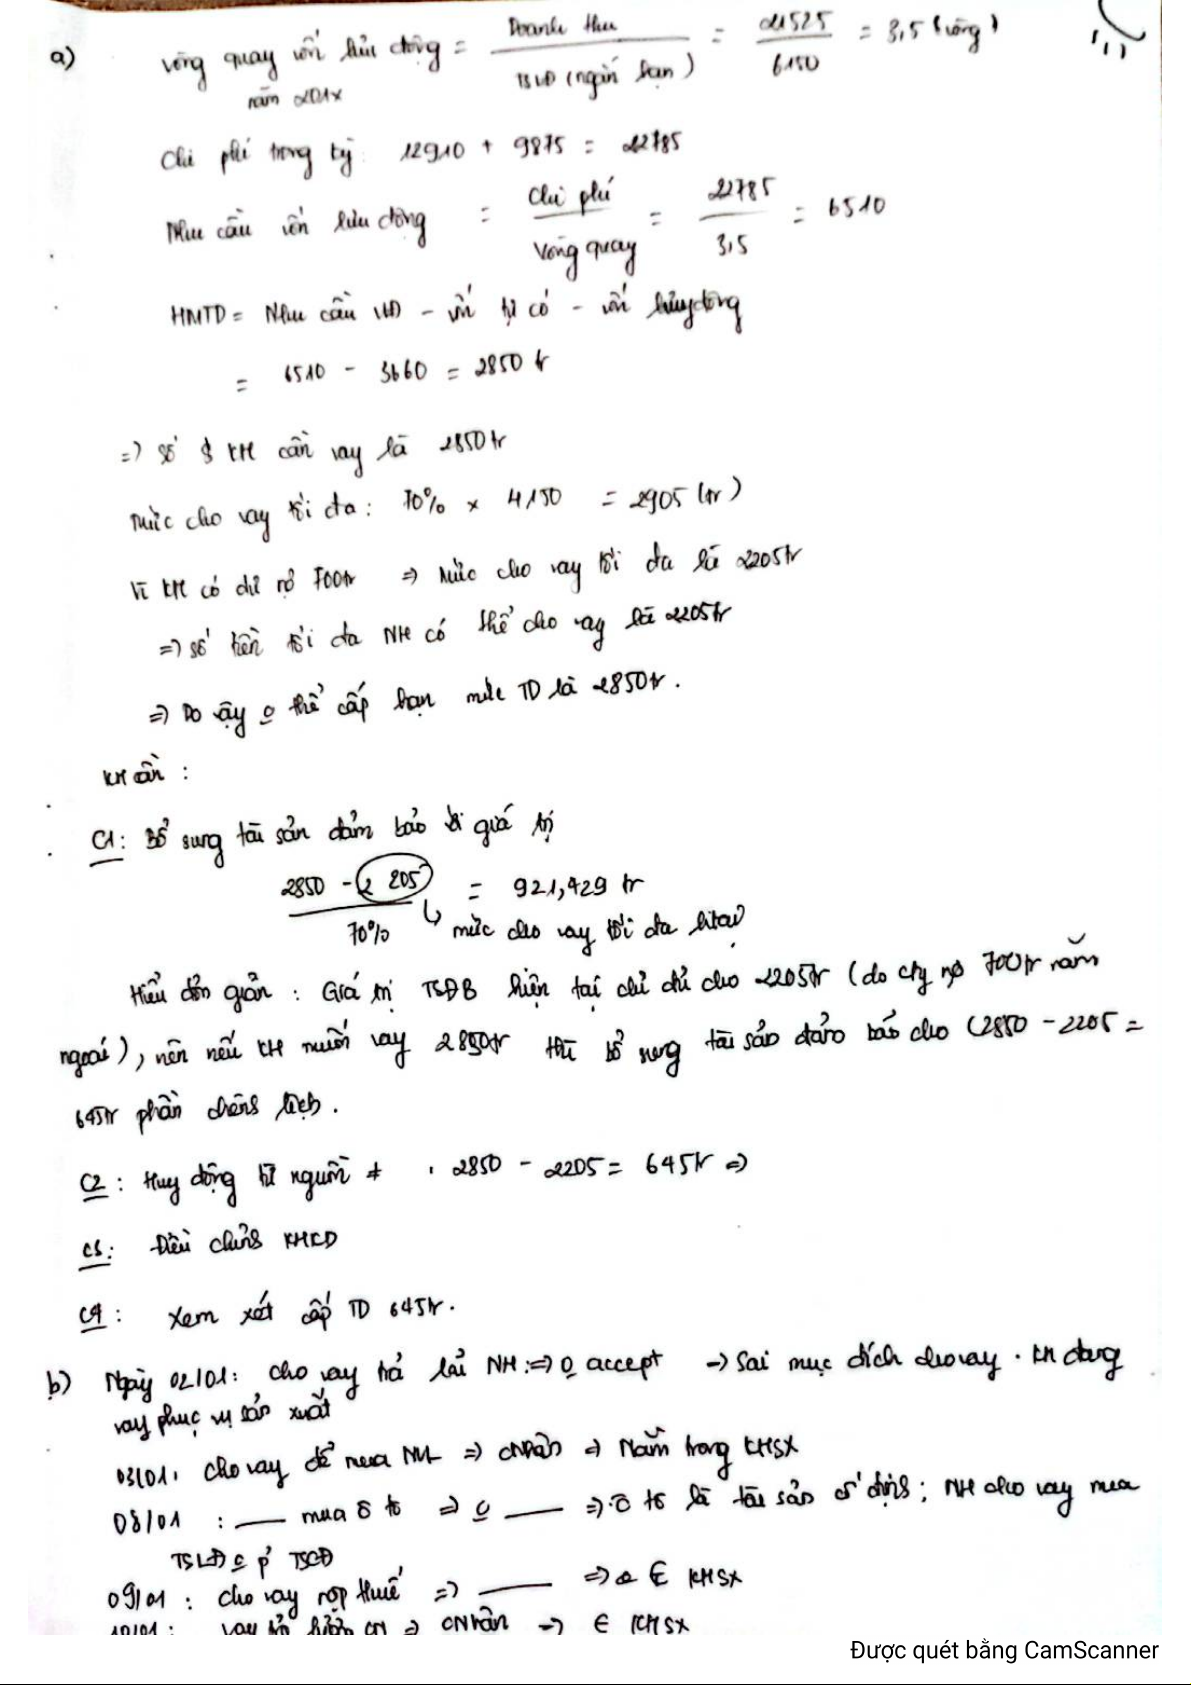 a) Vòng quay vốn lưu động = Doanh thu / TSLĐ (ngắn hạn) = 21525 / 6150 = 3,5 (vòng)
năm 201x
Chi phí trong kỳ: 12910 + 9875 = 22785
Nhu cầu vốn lưu động = Chi phí / Vòng quay = 22785 / 3,5 = 6510
HMTD = Nhu cầu VLĐ - vốn tự có - vốn huy động
= 6510 - 3660 = 2850 tr
=> Số $ KH cần vay là 2850tr
Mức cho vay tối đa: 70% × 4150 = 2905 (tr)
Vì KH có dư nợ 700tr => Mức cho vay tối đa là 2205tr
=> Số tiền tối đa NH có thể cho vay là 2205tr
=> Do vậy o thể cấp hạn mức TD là 2850tr.
KH cần :
C1: Bổ sung tài sản đảm bảo giá trị
2850 - 2205 / 70% = 921,429 tr
mức cho vay tối đa htại
Hiểu đơn giản : Giá trị TSĐB hiện tại chỉ đủ cho 2205tr (do cty nợ 700tr năm
ngoái), nên nếu KH muốn vay 2850tr thì bổ sung tài sản đảm bảo cho (2850 - 2205 =
645tr phần chênh lệch.
C2 : Huy động từ nguồn ≠ : 2850 - 2205 = 645tr =>
C3: Điều chỉnh KHCD
C4 : Xem xét cấp TD 645tr.
b) Ngày 02/01: cho vay trả lãi NH => o accept -> Sai mục đích cho vay. KH đang
vay phục vụ sản xuất
03/01: cho vay để mua NVL => cNhận => Nằm trong KHSX
08/01 : — mua ô tô => o — => ô tô là tài sản cố định; NH cho vay mua
TSLĐ o p' TSCĐ
09/01 : cho vay nộp thuế => — => o ∈ KHSX
10/01 : vay trả lương CN => cNhận -> ∈ KHSX
Được quét bằng CamScanner